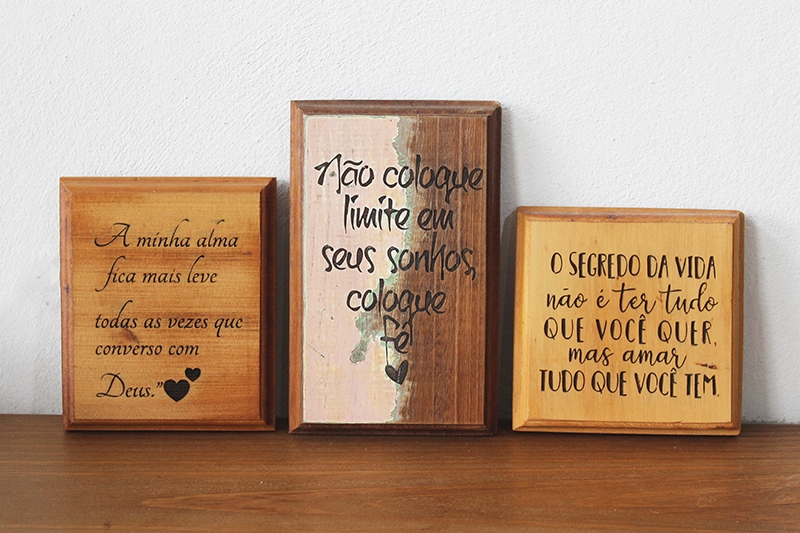 A minha alma
fica mais leve
todas as vezes que
converso com
Deus."
Não coloque
limite em
seus sonhos,
coloque
fé!
O SEGREDO DA VIDA
não é ter tudo
QUE VOCÊ QUER,
mas amar
TUDO QUE VOCÊ TEM.